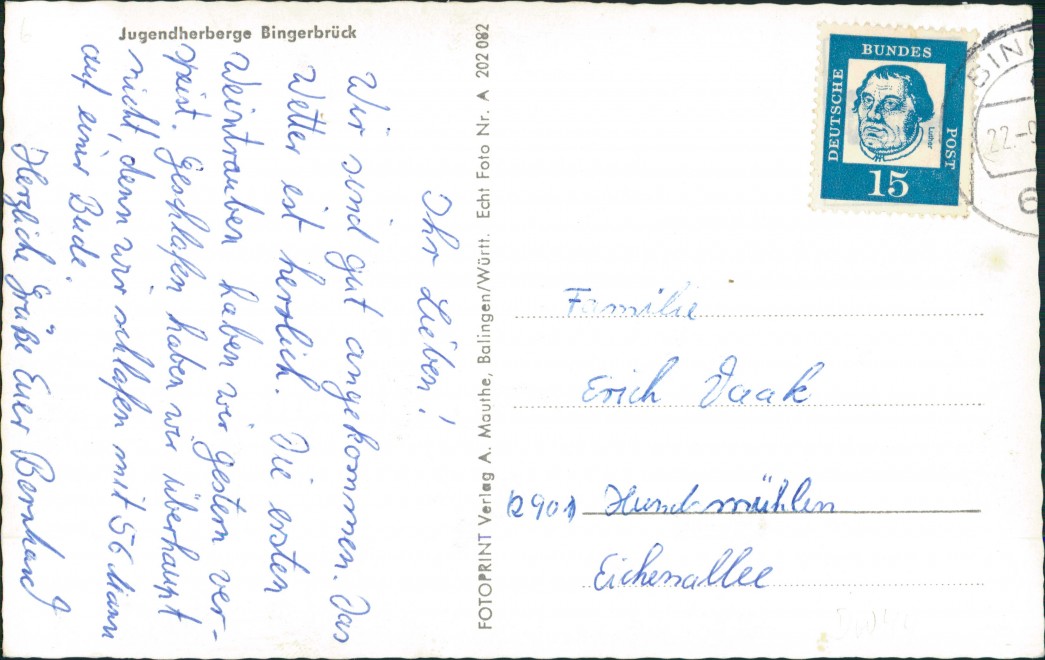 Jugendherberge Bingerbrück
Ihr Lieben!
Wir sind gut angekommen. Das
Wetter ist herrlich. Die ersten
Weintrauben haben wir gestern ver-
speist. Geschlafen haben wir überhaupt
nicht, denn wir schlafen mit 56 Mann
auf einer Bude.
Herzliche Grüße Euer Bernhard
FOTOPRINT Verlag A. Mauthe, Balingen/Württ. Echt Foto Nr. A 202 082
DEUTSCHE
BUNDES
POST
Luther
15
BING
22.-9
6
Familie
Erich Daak
2901 Hundsmühlen
Eichenallee